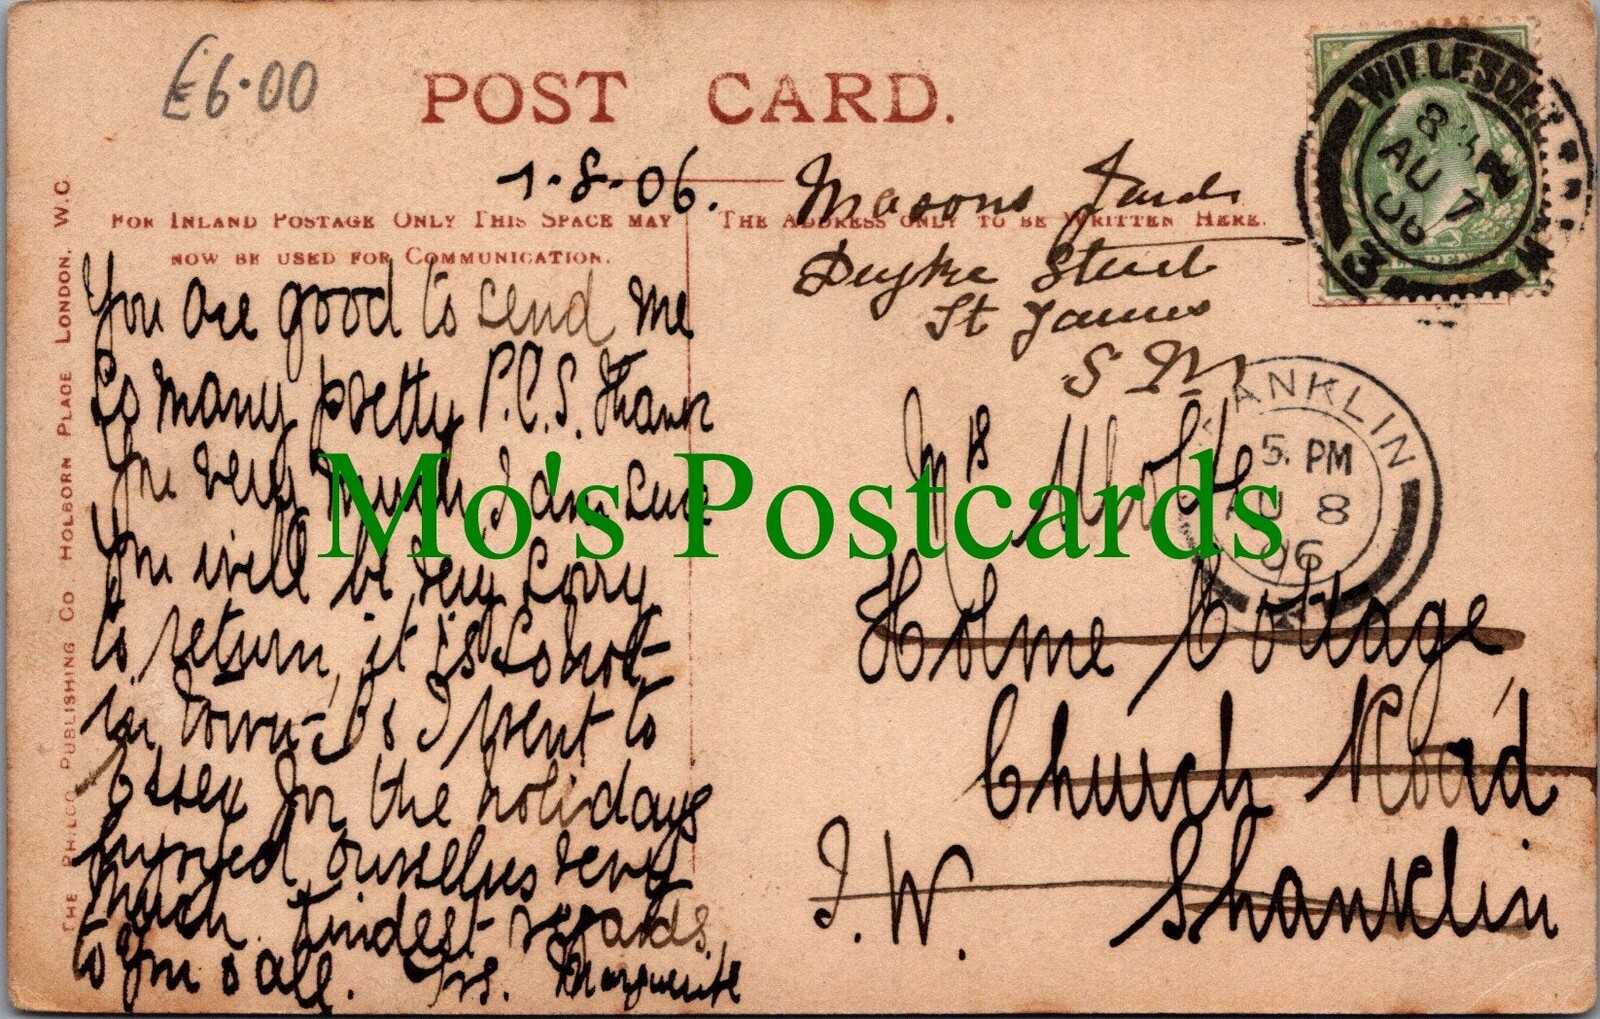 £6.00
POST CARD.
7-8-06.
FOR INLAND POSTAGE ONLY THIS SPACE MAY
NOW BE USED FOR COMMUNICATION.
THE ADDRESS ONLY TO BE WRITTEN HERE.
THE PHILCO PUBLISHING CO. HOLBORN PLACE LONDON. W.C.
You are good to send me
so many pretty P.C.S. Thank
You very much, I am sure
You will be very sorry
to return, it is so hot
in Town - As I went to
Essex for the holidays
enjoyed ourselves very
much. Kindest regards
to You & all. Yrs. Marguerite
Masons Yard
Street
St James
S W
Mrs
Holme Cottage
Church Road
Shanklin
I. W.
WILLESDEN
8
AU 7
06
3
SHANKLIN
5. PM
AU 8
06
Mo's Postcards